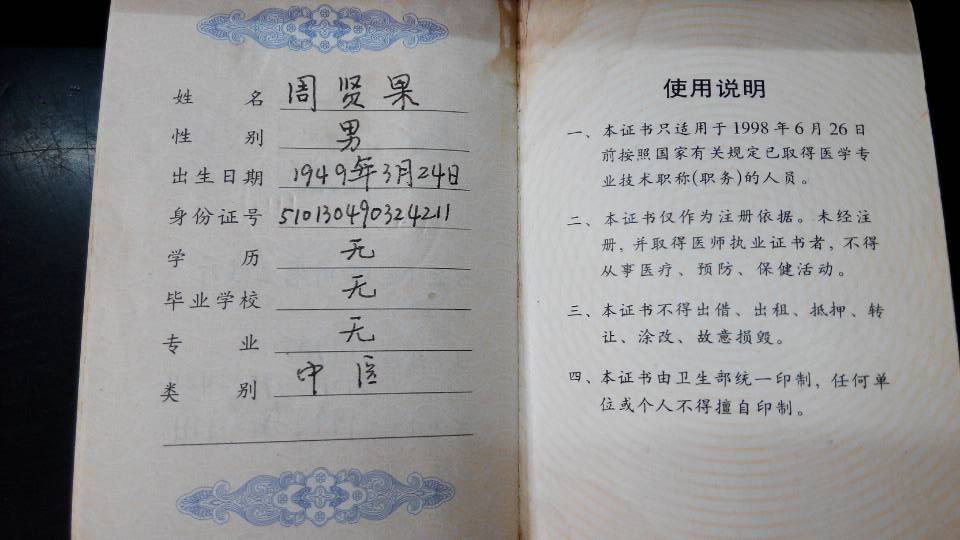 姓名 周贤果
性别 男
出生日期 1949年3月24日
身份证号 510130490324211
学历 无
毕业学校 无
专业 无
类别 中医
使用说明
一、本证书只适用于1998年6月26日
前按照国家有关规定已取得医学专
业技术职称(职务)的人员。
二、本证书仅作为注册依据。未经注
册,并取得医师执业证书者,不得
从事医疗、预防、保健活动。
三、本证书不得出借、出租、抵押、转
让、涂改、故意损毁。
四、本证书由卫生部统一印制,任何单
位或个人不得擅自印制。